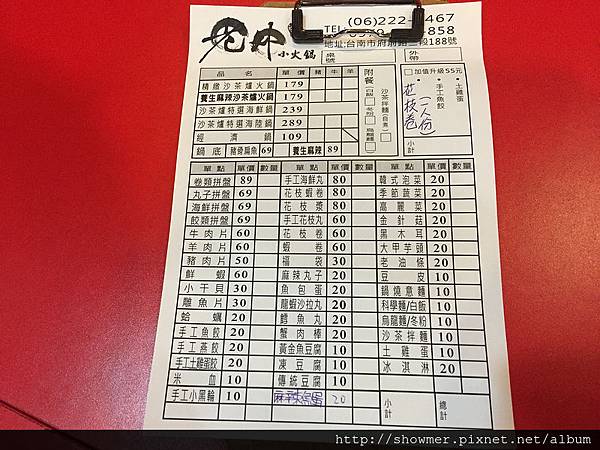 小火鍋
TEL:
(06)222- 467
858
地址:台南市府前路二段188號
桌號
外帶
品名 單價 豬 牛 羊
精緻沙茶爐火鍋 179
養生麻辣沙茶爐火鍋 179
沙茶爐特選海鮮鍋 239
沙茶爐特選海陸鍋 289
經濟鍋 109
鍋底 豬發扁魚 69 養生麻辣 89
附餐
白飯 冬粉 烏龍麵
沙茶拌麵(自煮)
加值升級55元
土雞蛋
手工魚餃
花枝卷(一人份)
小計
單點 單價 數量 單點 單價 數量 單點 單價 數量
卷類拼盤 89 手工海鮮丸 80 韓式泡菜 20
丸子拼盤 69 花枝蝦卷 80 季節蔬菜 20
海鮮拼盤 69 花枝漿 80 高麗菜 20
餃類拼盤 69 手工花枝丸 60 金針菇 20
牛肉片 60 花枝卷 60 黑木耳 20
羊肉片 60 蝦卷 60 大甲芋頭 20
豬肉片 50 福袋 30 老油條 20
鮮蝦 60 麻辣丸子 20 豆皮 10
小干貝 30 魚包蛋 20 鍋燒意麵 10
雕魚片 30 龍蝦沙拉丸 20 科學麵/白飯 10
蛤蠣 20 鱈魚丸 20 烏龍麵/冬粉 10
手工魚餃 20 蟹肉棒 20 沙茶拌麵 10
手工燕餃 20 黃金魚豆腐 10 土雞蛋 10
手工土雞蛋餃 20 凍豆腐 10 冰淇淋 20
米血 10 傳統豆腐 10
手工小黑輪 10 麻辣魚蛋 20
小計 總計
http://showmer.pixnet.net/album